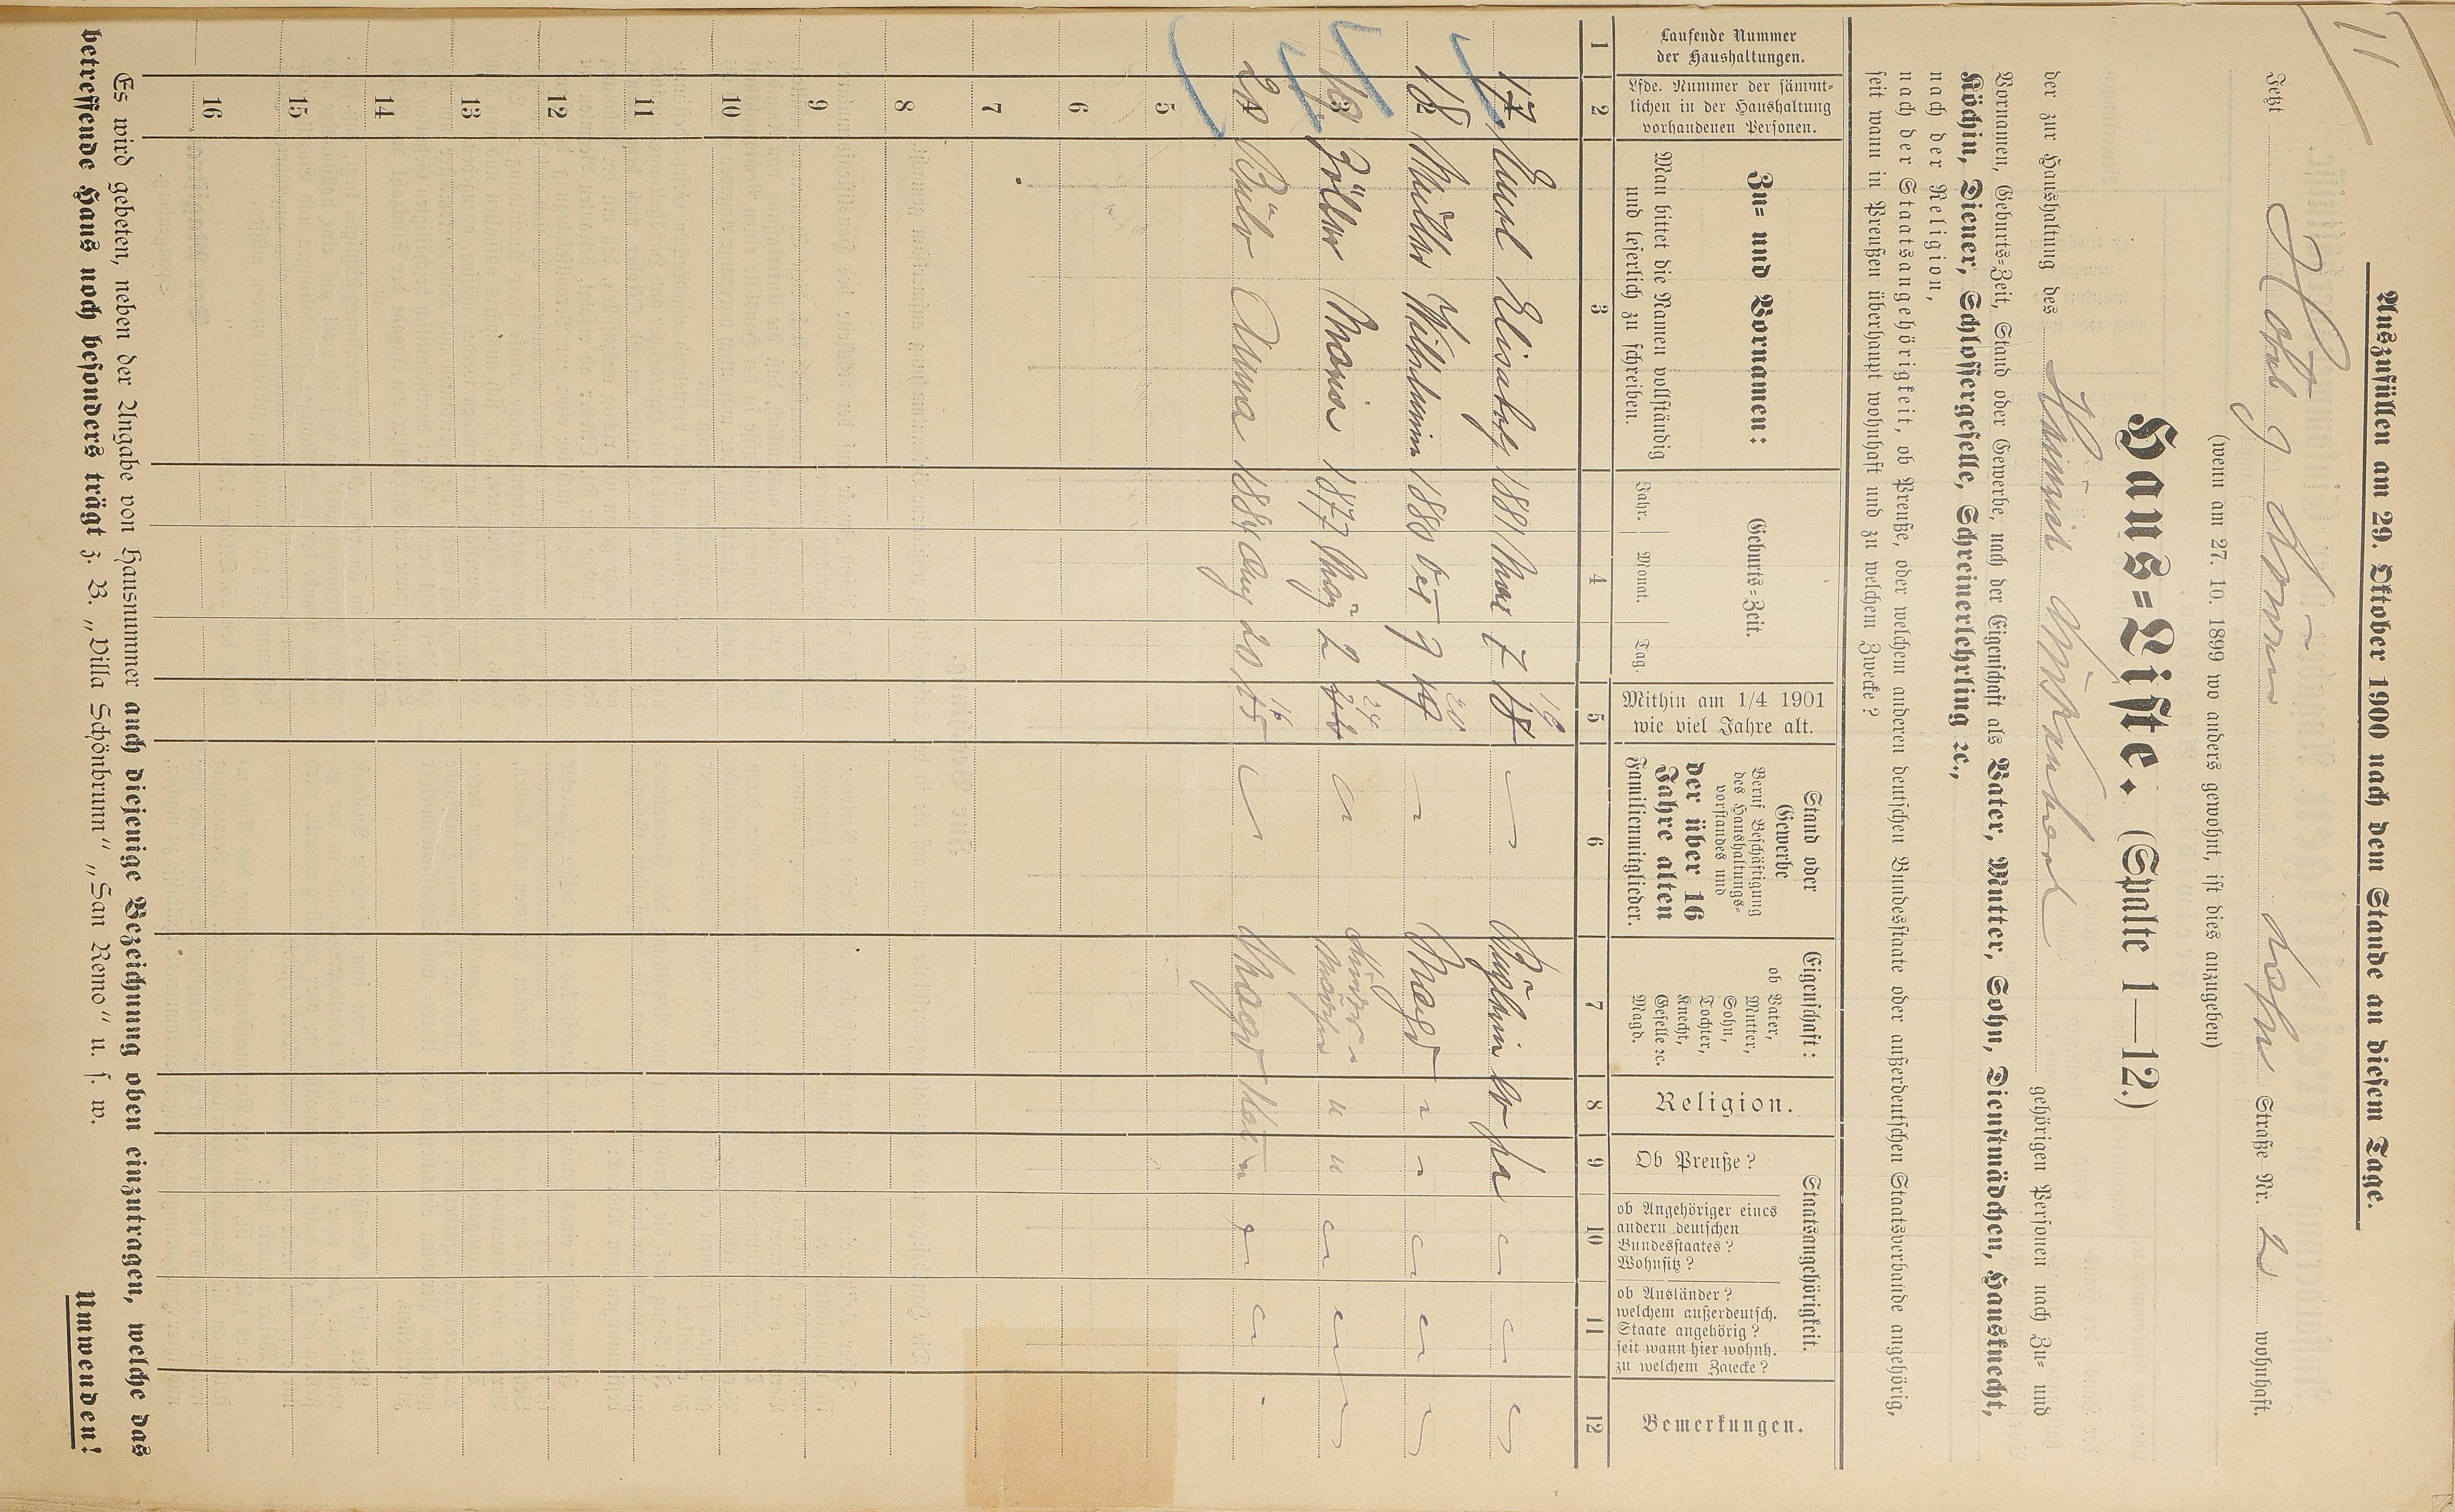 11
Auszufüllen am 29. Oktober 1900 nach dem Stande an diesem Tage.
Jetzt Hotel g Straße Nr. 2 wohnhaft.
(wenn am 27. 10. 1899 wo anders gewohnt, ist dies anzugeben)
Haus=Liste. (Spalte 1—12.)
der zur Haushaltung des gehörigen Personen nach Zu= und
Vornamen, Geburts=Zeit, Stand oder Gewerbe, nach der Eigenschaft als Vater, Mutter, Sohn, Dienstmädchen, Hausknecht,
Köchin, Diener, Schlossergeselle, Schreinerlehrling 2c.,
nach der Religion,
nach der Staatsangehörigkeit, ob Preuße, oder welchem anderen deutschen Bundesstaate oder außerdeutschen Staatsverbande angehörig,
seit wann in Preußen überhaupt wohnhaft und zu welchem Zwecke?
Laufende Nummer
der Haushaltungen.
Lfde. Nummer der sämmt=
lichen in der Haushaltung
vorhandenen Personen.
Zu= und Vornamen:
Man bittet die Namen vollständig
und leserlich zu schreiben.
Geburts=Zeit.
Jahr. Monat. Tag.
Mithin am 1/4 1901
wie viel Jahre alt.
Stand oder
Gewerbe
Beruf Beschäftigung
des Haushaltungs=
vorstandes und
der über 16
Jahre alten
Familienmitglieder.
Eigenschaft:
ob Vater,
Mutter,
Sohn,
Tochter,
Knecht,
Geselle 2c.
Magd.
Religion.
Staatsangehörigkeit.
Ob Preuße?
ob Angehöriger eines
andern deutschen
Bundesstaates?
Wohnsitz?
ob Ausländer?
welchem außerdeutsch.
Staate angehörig?
seit wann hier wohnh.
zu welchem Zwecke?
Bemerkungen.
1 2 3 4 5 6 7 8 9 10 11 12
17 Elisabeth 1881 Mai 7 18 19 — ja
18 Müller Wilhelmine 1880 9 19 20 — Magd
19 Zöller Maria 1877 2 24 " "
20 Anna 1884 Aug 20 15 16 Magd
5
6
7
8
9
10
11
12
13
14
15
16
Es wird gebeten, neben der Angabe von Hausnummer auch diejenige Bezeichnung oben einzutragen, welche das
betreffende Haus noch besonders trägt z. B. „Villa Schönbrunn" „San Remo" u. s. w.
Umwenden!